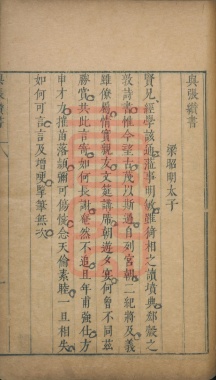 與張纘書
梁昭明太子
賢兄經學該通莅事明敏雖倚相之讀墳典郤縠之
敦詩書惟今望古蔑以斯過自列宮朝二紀將及義
雖僚屬情實親友文筵講席朝遊夕宴何曾不同茲
勝賞共此言寄如何長謝奄然不追且年甫強仕方
申才力摧苗落穎彌可傷惋念天倫素睦一旦相失
如何可言言及增哽擥筆無次
與張纘書